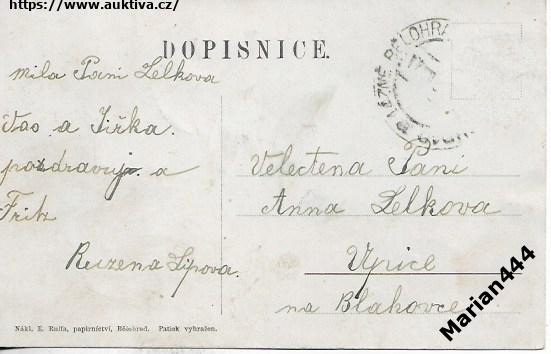 https://www.auktiva.cz/
DOPISNICE.
mila Pani Lelkova
Vas a Jiřka
pozdravuje a
Fritz
Ruzena Lipova.
Velectena Pani
Anna Lelkova
Upice
na Blahovce
LÁZNĚ BĚLOHRAD
Nákl. E. Knifa, papírnictví, Bělohrad. Patisk vyhražen.
Marian444